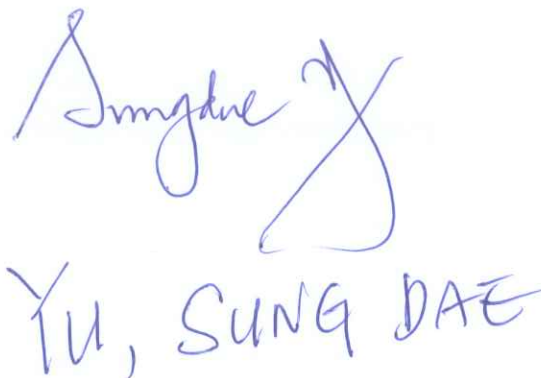 Sungdae Y
YU, SUNG DAE